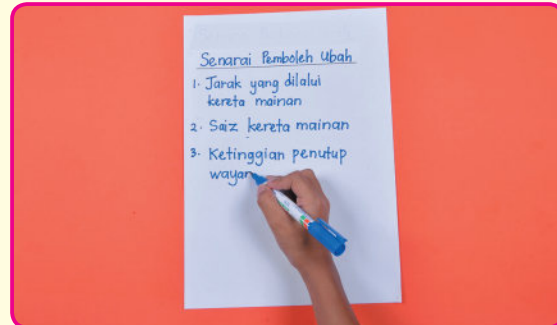 Senarai Pemboleh Ubah
1. Jarak yang dilalui
kereta mainan
2. Saiz kereta mainan
3. Ketinggian penutup
wayar